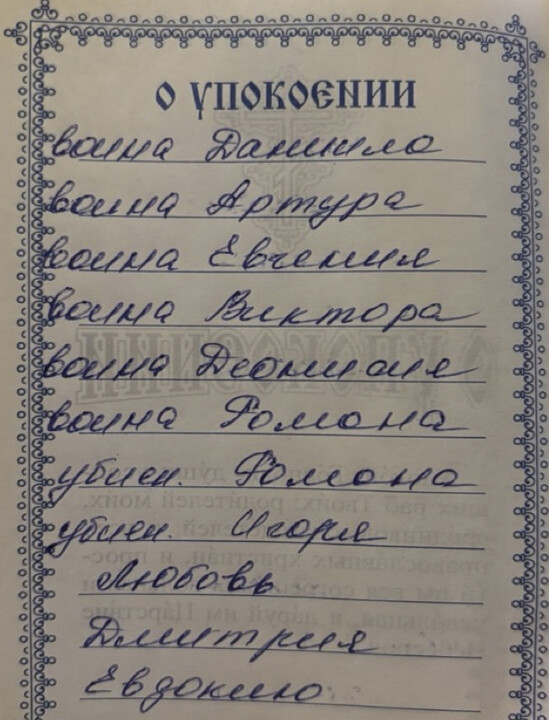 О УПОКОЄНИИ
воина Даниила
воина Артура
воина Евгения
воина Виктора
воина Дионисия
воина Романа
убиен. Романа
убиен. Игоря
Любовь
Дмитрия
Евдокию